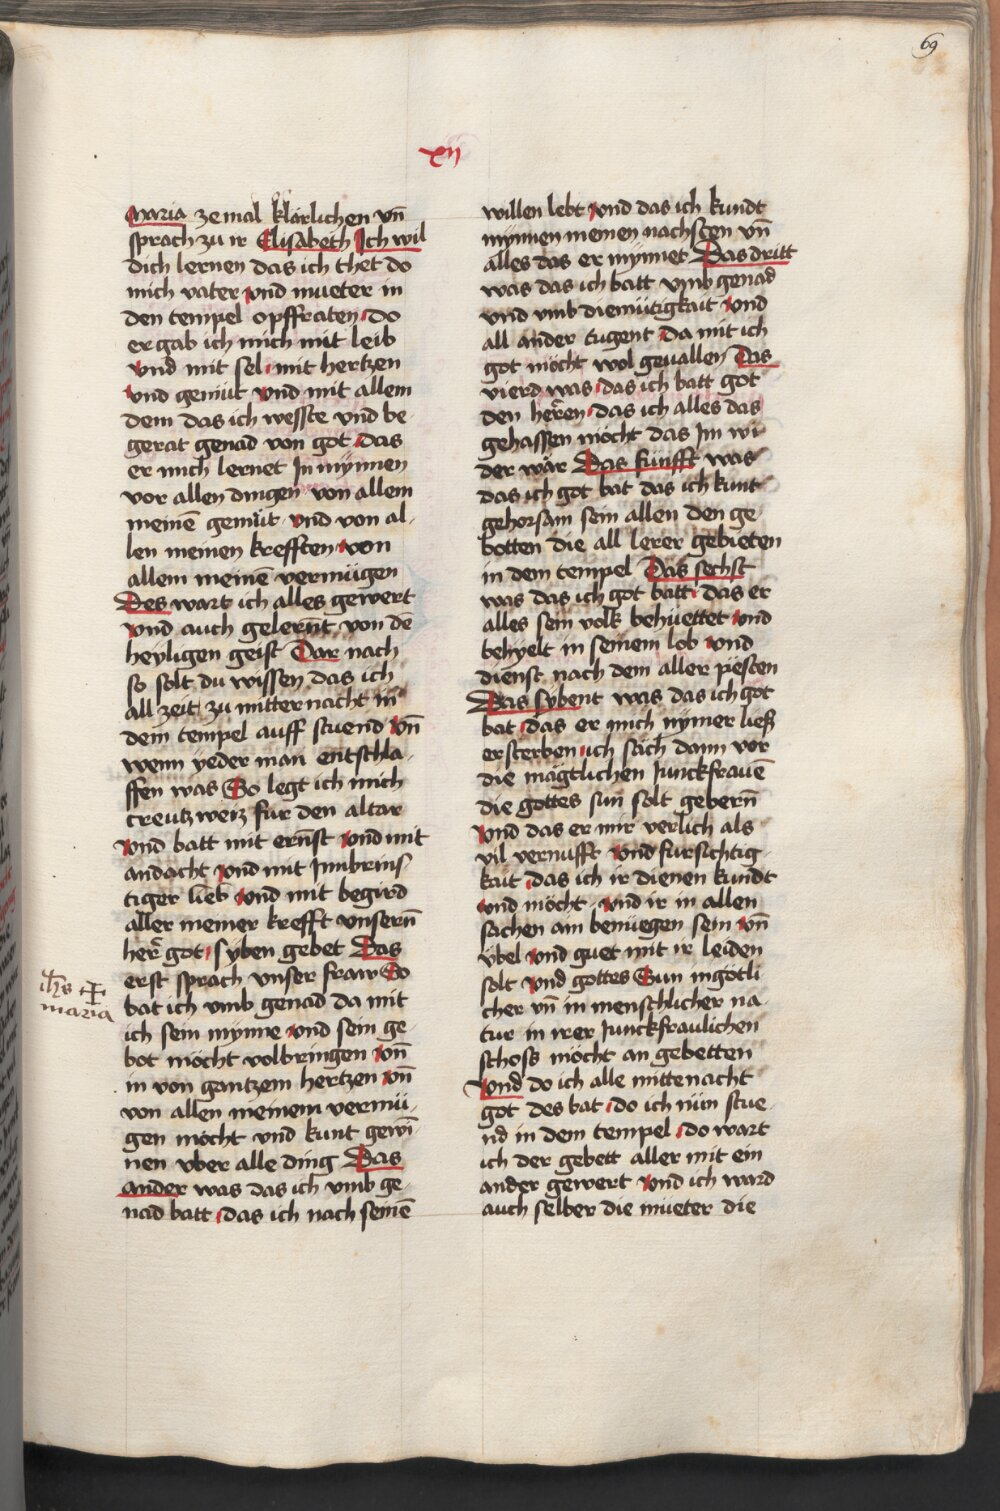 69
xij
maria ze mal klårlichen vn̄
sprach zu ir Elisabeth Ich wil
dich lernen das ich thet do
mich vater vnd mueter in
den tempel opffraten do
ergab ich mich mit leib
vnd mit sel mit hertzen
vnd gemüt vnd mit allem
dem das ich wesste vnd be
gerat genad von got das
er mich lernet In mynnen
vor allen dingen von allem
meinē gemüt vnd von al
len meinen krefften von
allem meinē vermügen
Des wart ich alles gewert
vnd auch gelernt von dē
heyligen geist Dar nach
so solt du wissen das ich
all zeit zu mitternacht in
dem tempel auff stuend vn̄
wenn yeder man entschla
ffen was So legt ich mich
creutz weiz fur den altar
vnd batt mit ernst vnd mit
andacht vnd mit Innbrins
tiger lieb vnd mit begird
aller meiner krefft vnsern̄
her got syben gebet Das
erst sprach vnser fraw So
bat ich vmb genad da mit
ich sein mynne vnd sein ge
bot möcht volbringen vn̄
in von gantzem hertzen vn̄
von allen meinem vermü
gen möcht vnd kunt gewī
nen vber alle ding Das
ander was das ich vmb ge
nad batt das ich nach seinē
ihs
maria
willen lebt vnd das ich kundt
mynnen meinen nachsten vn̄
alles das er mynnet Das dritt
was das ich batt vmb genad
vnd vmb diemütigkait vnd
all ander tugent da mit ich
got möcht wol geuallen Das
vierd was das ich batt got
den heren das ich alles das
gehassen möcht das Im wi
der wår Das funfft was
das ich got bat das ich kunt
gehorsam sein allen den ge
botten die all lerer gebieten
in dem tempel Das sechst
was das ich got batt das er
alles sein volk behüettet vnd
behyelt in seinem lob vnd
dienst nach dem aller pesten
Das sybent was das ich got
bat das er mich nymer ließ
ersterben ich såch dann vor
die mågtlichen Junckfrauē
die gottes sun solt gebern̄
vnd das er mir verlich als
vil vernufft vnd fursichtig
kait das ich ir dienen kundt
vnd möcht vnd ir in allen
sachen ain benüegen sein vn̄
vbel vnd guet mit ir leiden
solt vnd gottes Sun in götli
cher vn̄ in menschlicher na
tur in irer Junckfraulichen
schoss möcht an gebetten
vnd do ich alle mittenacht
got des bat do ich nün stue
nd in dem tempel do wart
ich der gebett aller mit ein
ander gewert vnd ich ward
auch selber die müeter die